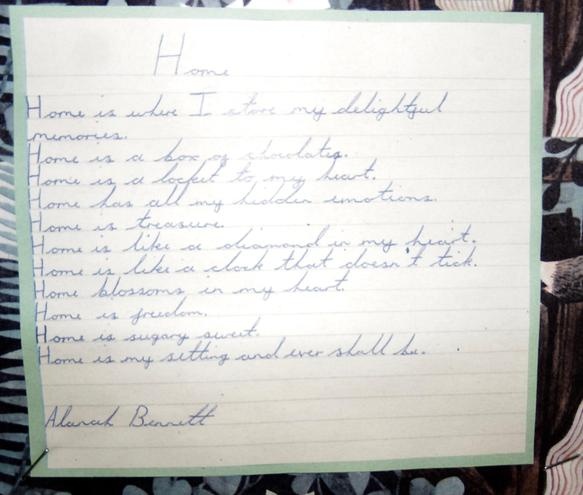 Home
Home is where I store my delightful
memories.
Home is a box of chocolates.
Home is a locket to my heart.
Home has all my hidden emotions.
Home is treasure.
Home is like a diamond in my heart.
Home is like a clock that doesn't tick.
Home blossoms in my heart.
Home is freedom.
Home is sugary sweet.
Home is my setting and ever shall be.
Alanah Bennett